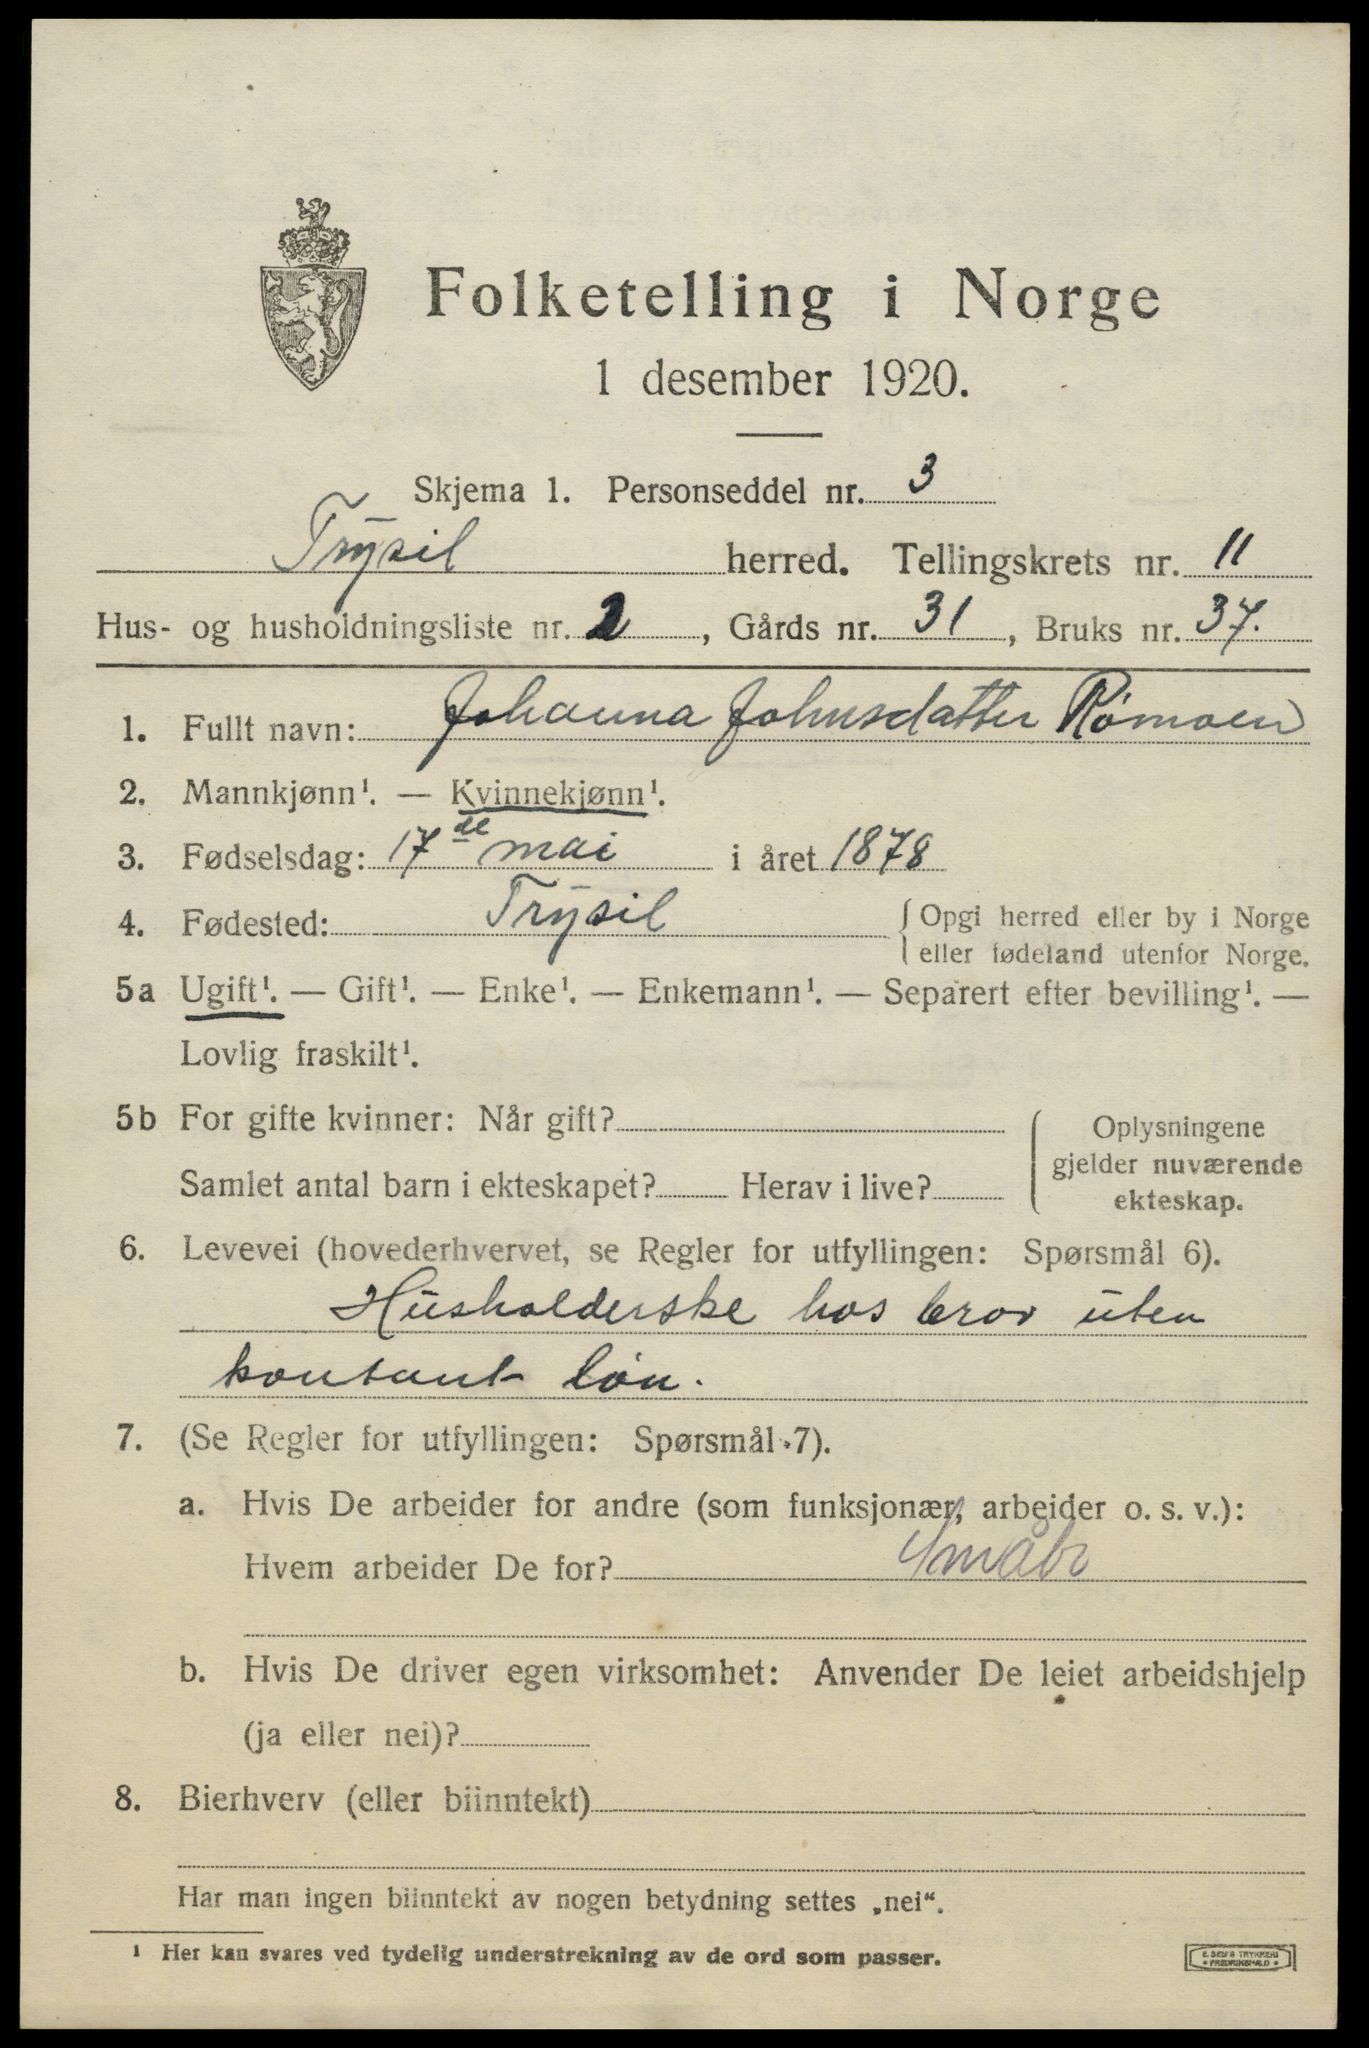 Folketelling i Norge
1 desember 1920.
Skjema 1. Personseddel nr. 3
Trysil herred. Tellingskrets nr. 11
Hus- og husholdningsliste nr. 2, Gårds nr. 31, Bruks nr. 37.
1. Fullt navn: Johanna Johnsdatter Rømoen
2. Mannkjønn¹. — Kvinnekjønn¹.
3. Fødselsdag: 17de mai i året 1878
4. Fødested: Trysil { Opgi herred eller by i Norge
eller fødeland utenfor Norge.
5a Ugift¹. — Gift¹. — Enke¹. — Enkemann¹. — Separert efter bevilling¹. —
Lovlig fraskilt¹.
5b For gifte kvinner: Når gift?
Samlet antal barn i ekteskapet? Herav i live?
Oplysningene
gjelder nuværende
ekteskap.
6. Levevei (hovederhvervet, se Regler for utfyllingen: Spørsmål 6).
Husholderske hos bror uten
kontant løn.
7. (Se Regler for utfyllingen: Spørsmål 7).
a. Hvis De arbeider for andre (som funksjonær, arbeider o. s. v.):
Hvem arbeider De for? Småbr
b. Hvis De driver egen virksomhet: Anvender De leiet arbeidshjelp
(ja eller nei)?
8. Bierhverv (eller biinntekt)
Har man ingen biinntekt av nogen betydning settes „nei“.
¹ Her kan svares ved tydelig understrekning av de ord som passer.
E. SEM'S TRYKKERI
• FREDRIKSHALD •